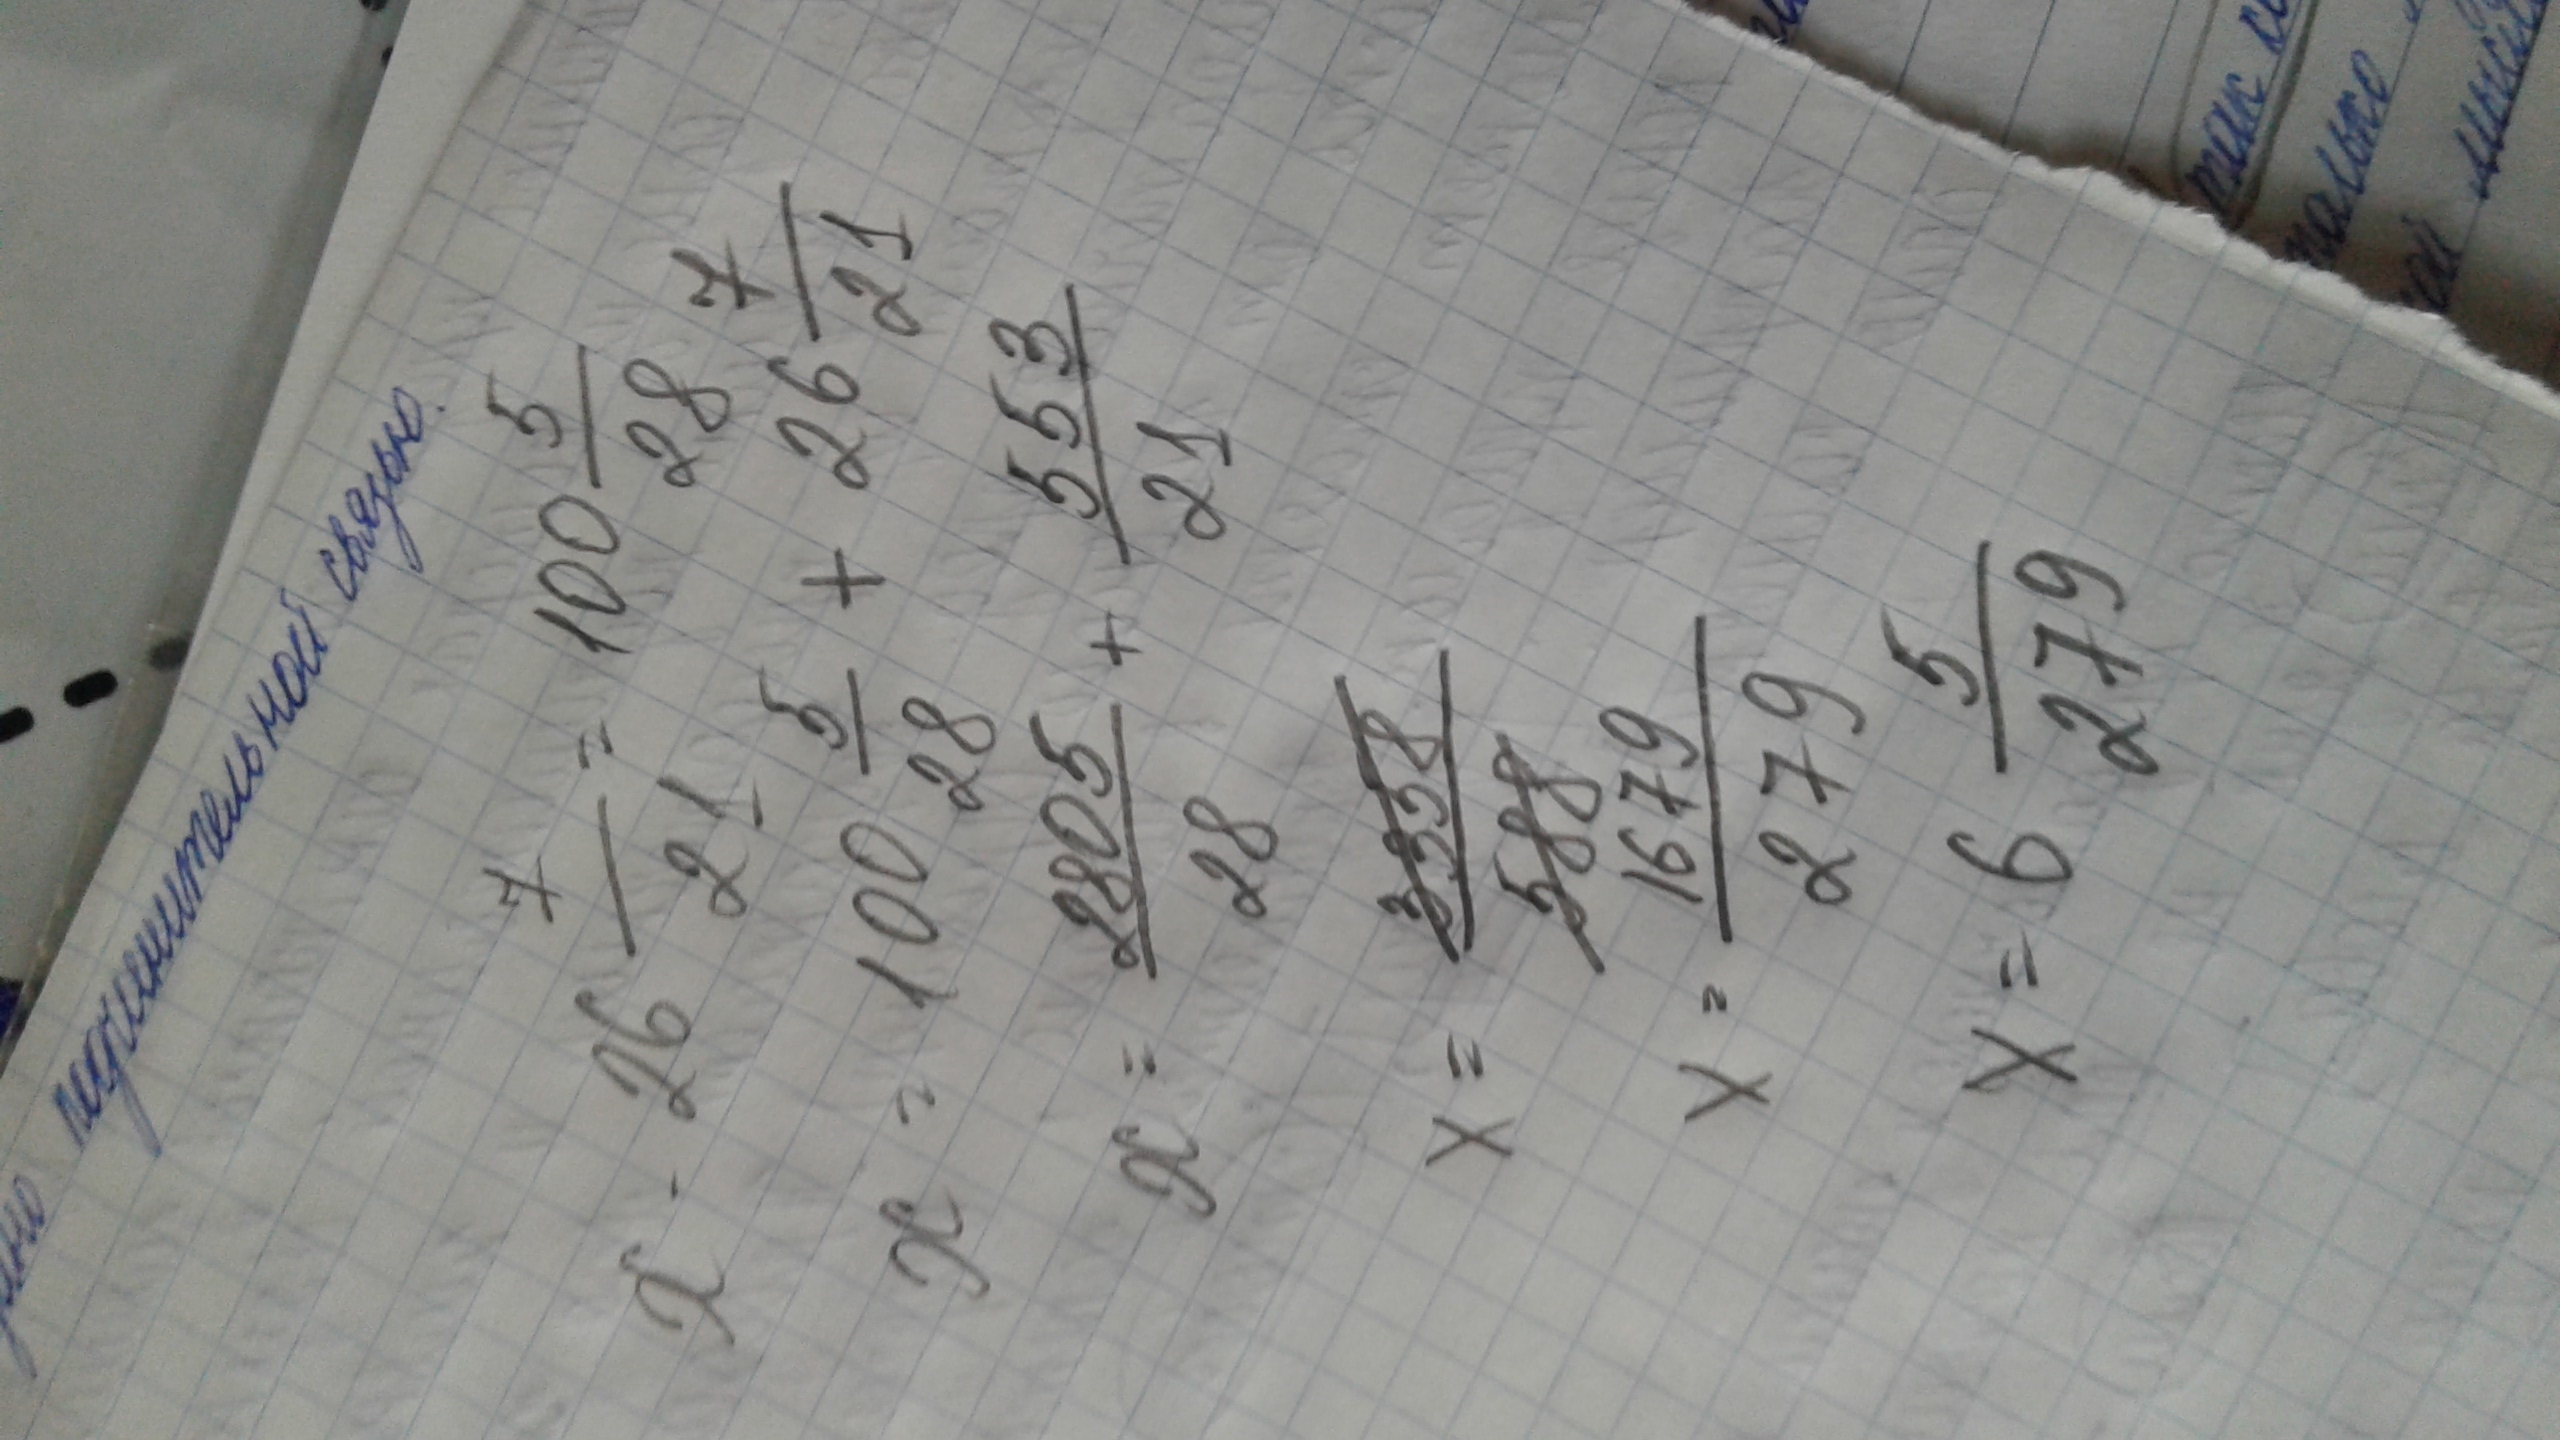 подчинительной связью.
x - 26 7/21 = 100 5/28
x = 100 5/28 + 26 7/21
x = 2805/28 + 553/21
x = 3358/588
x = 1679/279
x = 6 5/279
так
только